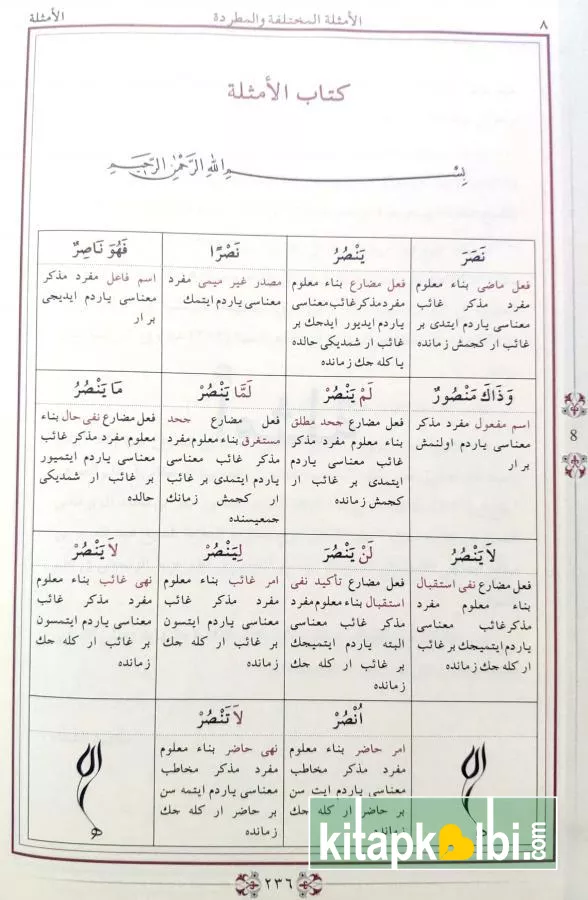 ٨
الأمثلة المختلفة والمطردة
الأمثلة
كتاب الأمثلة
بِسْمِ اللهِ الرَّحْمٰنِ الرَّحِيمِ
نَصَرَ
فعل ماضى بناء معلوم
مفرد مذكر غائب
معناسى ياردم ايتدى بر
غائب ار كجمش زمانده
يَنْصُرُ
فعل مضارع بناء معلوم
مفرد مذكر غائب معناسى
ياردم ايديور ايدجك بر
غائب ار شمديكى حالده
يا كله جك زمانده
نَصْرًا
مصدر غير ميمى مفرد
معناسى ياردم ايتمك
فَهُوَ نَاصِرٌ
اسم فاعل مفرد مذكر
معناسى ياردم ايديجى
بر ار
وَذَاكَ مَنْصُورٌ
اسم مفعول مفرد مذكر
معناسى ياردم اولنمش
بر ار
لَمْ يَنْصُرْ
فعل مضارع جحد مطلق
بناء معلوم مفرد مذكر
غائب معناسى ياردم
ايتمدى بر غائب ار
كجمش زمانده
لَمَّا يَنْصُرْ
فعل مضارع جحد
مستغرق بناء معلوم مفرد
مذكر غائب معناسى
ياردم ايتمدى بر غائب
ار كجمش زمانك
جمعيسنده
مَا يَنْصُرُ
فعل مضارع نفى حال بناء
معلوم مفرد مذكر غائب
معناسى ياردم ايتميور
بر غائب ار شمديكى
حالده
لاَ يَنْصُرُ
فعل مضارع نفى استقبال
بناء معلوم مفرد
مذكر غائب معناسى
ياردم ايتميجك بر غائب
ار كله جك زمانده
لَنْ يَنْصُرَ
فعل مضارع تأكيد نفى
استقبال بناء معلوم مفرد
مذكر غائب معناسى
البته ياردم ايتميجك
بر غائب ار كله جك
زمانده
لِيَنْصُرْ
امر غائب بناء معلوم
مفرد مذكر غائب
معناسى ياردم ايتسون
بر غائب ار كله جك
زمانده
لاَ يَنْصُرْ
نهى غائب بناء معلوم
مفرد مذكر غائب
معناسى ياردم ايتمسون
بر غائب ار كله جك
زمانده
اُنْصُرْ
امر حاضر بناء معلوم
مفرد مذكر مخاطب
معناسى ياردم ايت سن
بر حاضر ار كله جك
زمانده
لاَ تَنْصُرْ
نهى حاضر بناء معلوم
مفرد مذكر مخاطب
معناسى ياردم ايتمه سن
بر حاضر ار كله جك
زمانده
8
٢٣٦
kitapkalbi.com